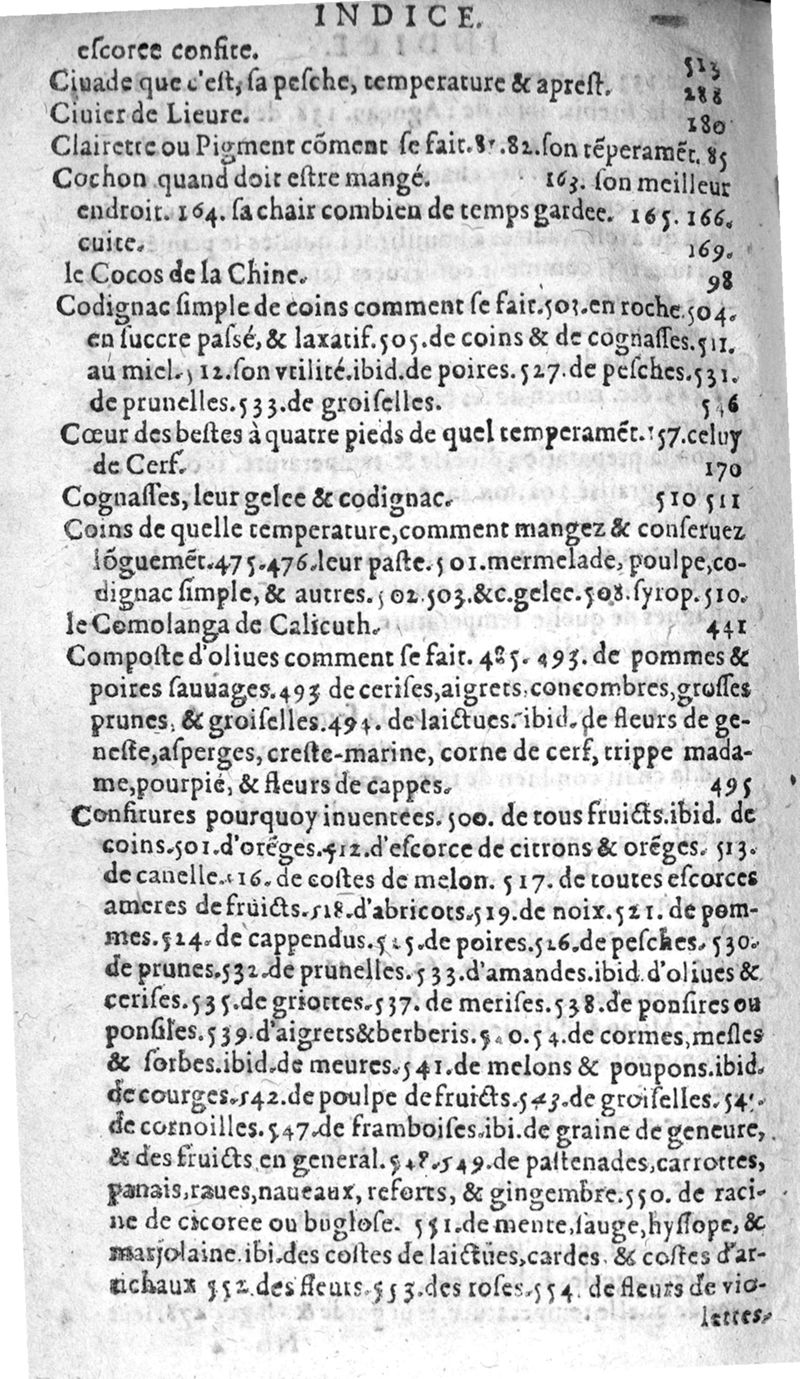 INDICE.
eſcorce confite. 513
Ciuade que c'eſt, ſa peſche, temperature & apreſt. 288
Ciuier de Lieure. 180
Clairette ou Pigment cõment ſe fait. 82. ſon tẽperamẽt. 85
Cochon quand doit eſtre mangé. 163. ſon meilleur
endroit. 164. ſa chair combien de temps gardee. 165. 166.
cuite. 169.
le Cocos de la Chine. 98
Codignac ſimple de coins comment ſe fait. 503. en roche. 504.
en ſuccre paſſé, & laxatif. 505. de coins & de cognaſſes. 511.
au miel. 12. ſon vtilité. ibid. de poires. 527. de peſches. 531.
de prunelles. 533. de groiſelles. 546
Cœur des beſtes à quatre pieds de quel temperamẽt. 157. celuy
de Cerf. 170
Cognaſſes, leur gelee & codignac. 510 511
Coins de quelle temperature, comment mangez & conſeruez
lõguemẽt. 475. 476. leur paſte. 501. mermelade, poulpe, co-
dignac ſimple, & autres. 502. 503. &c. gelee. 508. ſyrop. 510.
le Comolanga de Calicuth. 441
Compoſte d'oliues comment ſe fait. 485. 493. de pommes &
poires ſauuages. 493 de ceriſes, aigrets, concombres, groſſes
prunes, & groiſelles. 494. de laictues. ibid. de fleurs de ge-
neſte, aſperges, creſte-marine, corne de cerf, trippe mada-
me, pourpié, & fleurs de cappes. 495
Confitures pourquoy inuentees. 500. de tous fruicts. ibid. de
coins. 501. d'orẽges. 512. d'eſcorce de citrons & orẽges. 513.
de canelle. 516. de coſtes de melon. 517. de toutes eſcorces
ameres de fruicts. 518. d'abricots. 519. de noix. 521. de pom-
mes. 524. de cappendus. 525. de poires. 526. de peſches. 530.
de prunes. 532. de prunelles. 533. d'amandes. ibid. d'oliues &
ceriſes. 535. de griottes. 537. de meriſes. 538. de ponſires ou
ponſiles. 539. d'aigrets & berberis. 540. 54. de cormes, meſles
& ſorbes. ibid. de meures. 541. de melons & poupons. ibid.
de courges. 542. de poulpe de fruicts. 543. de groiſelles.
de cornoilles. 547. de framboiſes. ibi. de graine de geneure,
& des fruicts en general. 548. 549. de paſtenades, carrottes,
panais, raues, naueaux, reforts, & gingembre. 550. de raci-
ne de cicoree ou bugloſe. 551. de mente, ſauge, hyſſope, &
marjolaine. ibi. des coſtes de laictües, cardes & coſtes d'ar-
tichaux 552. des fleurs. 553. des roſes. 554. de fleurs de vio-
lettes.